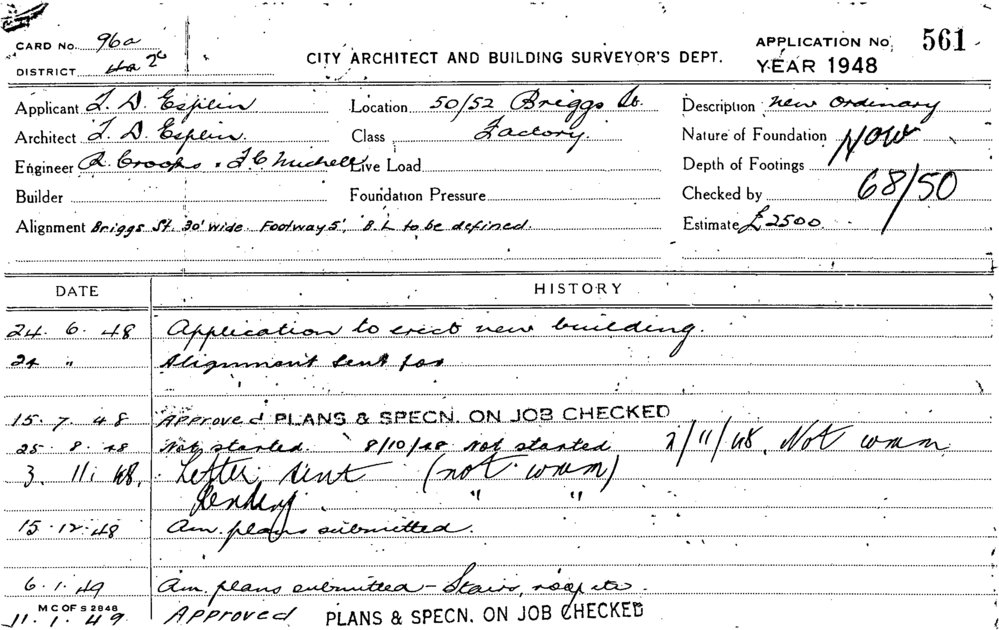 CARD No. 96a
DISTRICT
CITY ARCHITECT AND BUILDING SURVEYOR'S DEPT.
APPLICATION No. 561
YEAR 1948
Applicant T. D. Esplin Location 50/52 Briggs St. Description new ordinary
Architect T. D. Esplin. Class Factory. Nature of Foundation NOW
Engineer R. Crooks & F C Michell Live Load Depth of Footings
Builder Foundation Pressure Checked by 68/50
Alignment Briggs St. 30' wide. Footway 5', B.L to be defined. Estimate £2500
DATE HISTORY
24. 6. 48 Application to erect new building.
24 " Alignment sent for
15. 7. 48 Approved PLANS & SPECN. ON JOB CHECKED
25. 8. 48 Not started. 8/10/48 Not started 2/11/48. Not comm
3. 11. 48. Letter sent (not comm)
Pending " "
15. 12. 48 Am. plans submitted.
6. 1. 49 Am. plans submitted - Stairs, roof etc.
M C OF S 2848
11. 1. 49 Approved PLANS & SPECN. ON JOB CHECKED